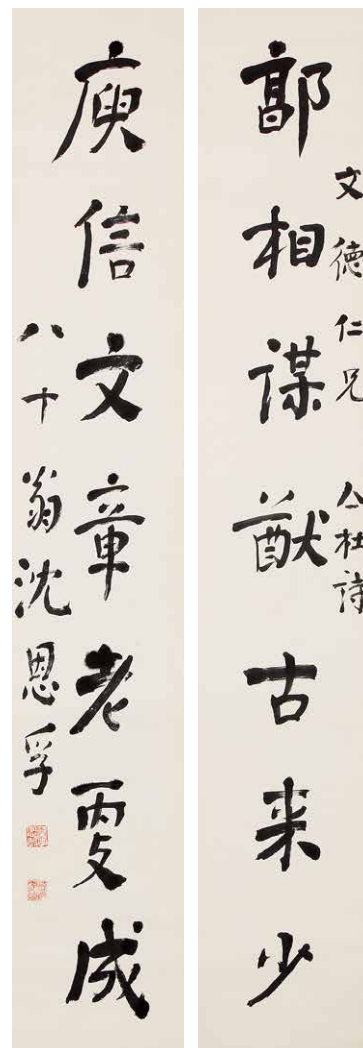 郭相謀猷古来少
文德仁兄 亼杜詩
庾信文章老㪅成
八十翁沈恩孚